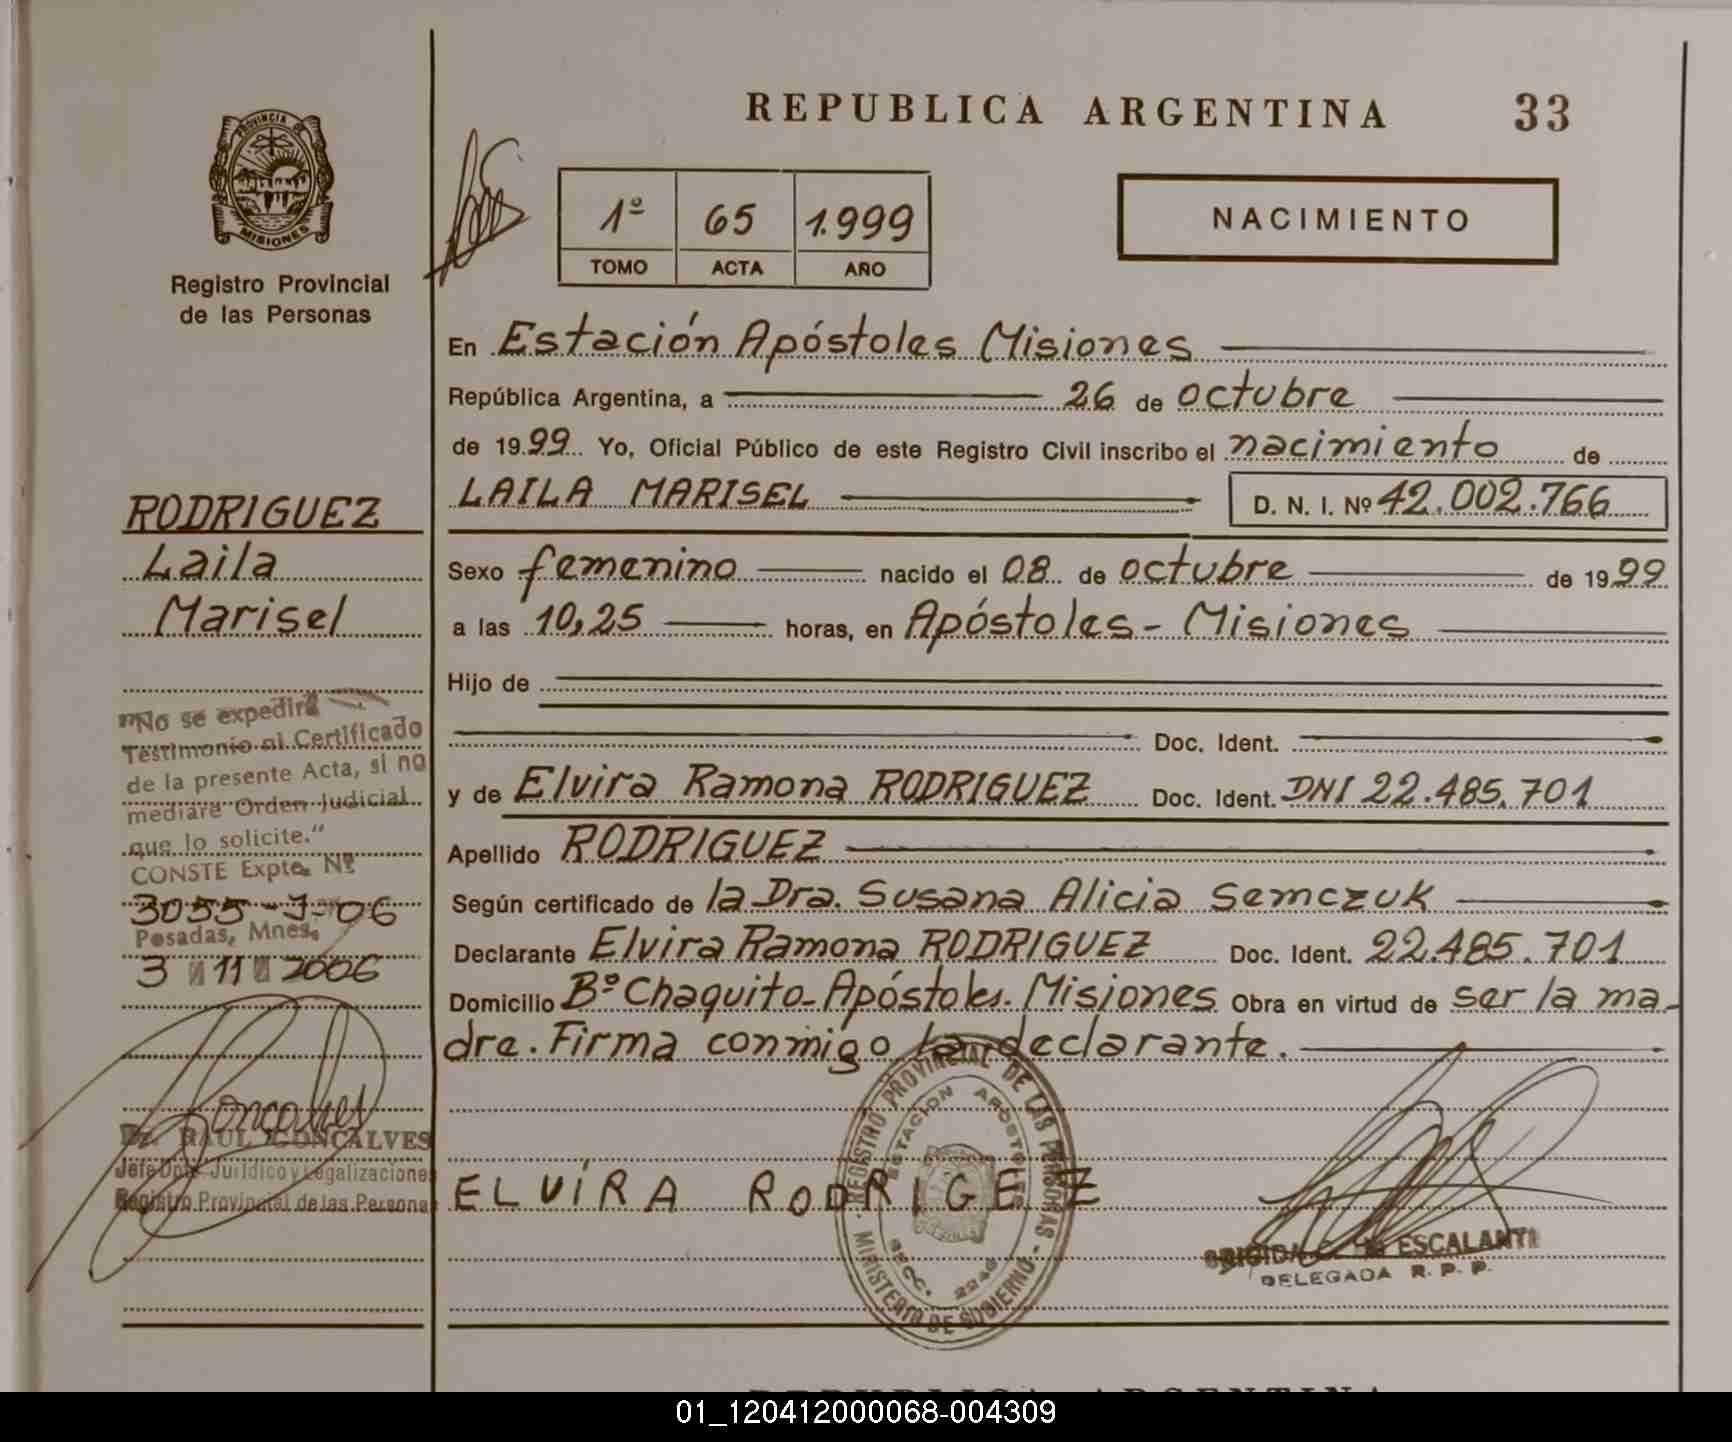 REPUBLICA ARGENTINA 33
PROVINCIA DE
MISIONES
Registro Provincial
de las Personas
1º 65 1.999
TOMO ACTA AÑO
NACIMIENTO
En Estación Apóstoles Misiones
República Argentina, a 26 de octubre
de 1999 Yo, Oficial Público de este Registro Civil inscribo el nacimiento de
LAILA MARISEL D. N. I. Nº 42.002.766
Sexo femenino nacido el 08 de octubre de 1999
a las 10,25 horas, en Apóstoles - Misiones
Hijo de
Doc. Ident.
y de Elvira Ramona RODRIGUEZ Doc. Ident. DNI 22.485.701
Apellido RODRIGUEZ
Según certificado de la Dra. Susana Alicia Semczuk
Declarante Elvira Ramona RODRIGUEZ Doc. Ident. 22.485.701
Domicilio Bº Chaquito - Apóstoles. Misiones Obra en virtud de ser la ma-
dre. Firma conmigo la declarante.
RODRIGUEZ
Laila
Marisel
"No se expedirá
Testimonio ni Certificado
de la presente Acta, si no
mediare Orden Judicial
que lo solicite."
CONSTE Expte. Nº
3055-J-06
Posadas, Mnes.
3 11 2006
Dr. RAUL GONCALVES
Jefe Dpto. Jurídico y Legalizaciones
Registro Provincial de las Personas
ELVÍRA RODRIGEZ
REGISTRO PROVINCIAL DE LAS PERSONAS - MINISTERIO DE GOBIERNO -
ESTACION APOSTOLES
SECC. 2246
ESCALANTE
DELEGADA R. P. P.
REPUBLICA ARGENTINA
01_120412000068-004309